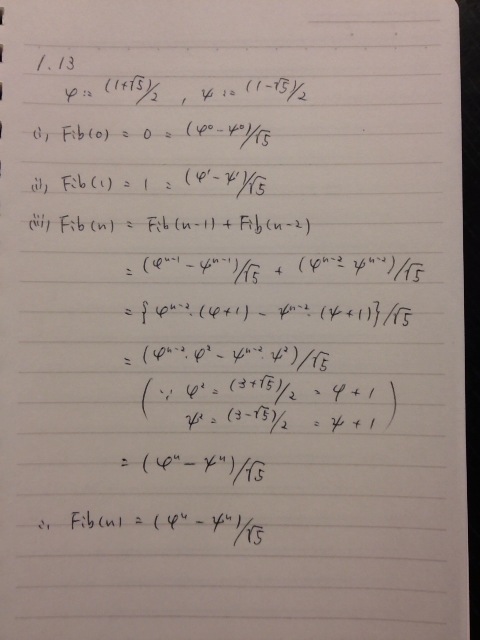 1.13
φ := (1+√5)/2 , ψ := (1-√5)/2
(i) Fib(0) = 0 = (φ⁰ - ψ⁰)/√5
(ii) Fib(1) = 1 = (φ¹ - ψ¹)/√5
(iii) Fib(n) = Fib(n-1) + Fib(n-2)
= (φⁿ⁻¹ - ψⁿ⁻¹)/√5 + (φⁿ⁻² - ψⁿ⁻²)/√5
= {φⁿ⁻²·(φ+1) - ψⁿ⁻²·(ψ+1)}/√5
= (φⁿ⁻²·φ² - ψⁿ⁻²·ψ²)/√5
(∵ φ² = (3+√5)/2 = φ + 1
ψ² = (3-√5)/2 = ψ + 1)
= (φⁿ - ψⁿ)/√5
∴ Fib(n) = (φⁿ - ψⁿ)/√5